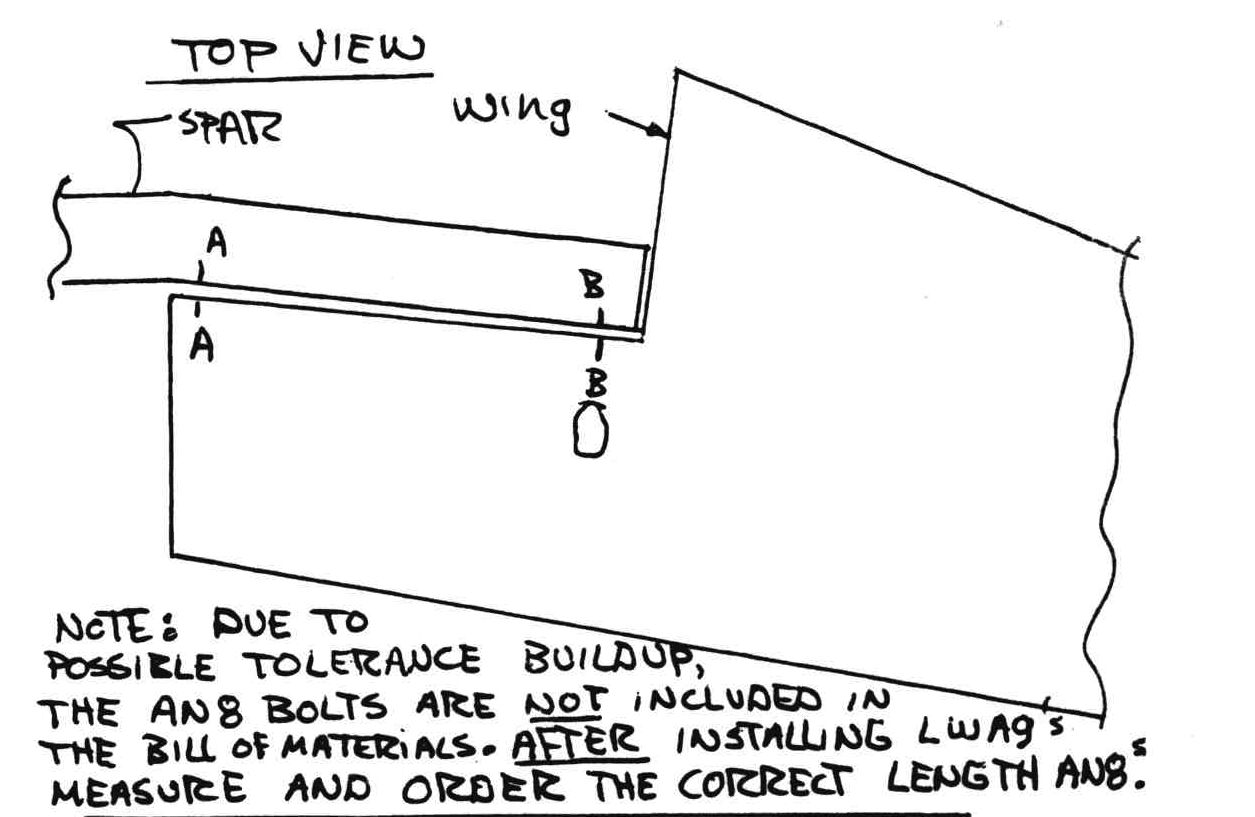 TOP VIEW
SPAR
Wing
A
B
A
B
NOTE: DUE TO
POSSIBLE TOLERANCE BUILDUP,
THE AN8 BOLTS ARE NOT INCLUDED IN
THE BILL OF MATERIALS. AFTER INSTALLING LWA9's
MEASURE AND ORDER THE CORRECT LENGTH AN8's.